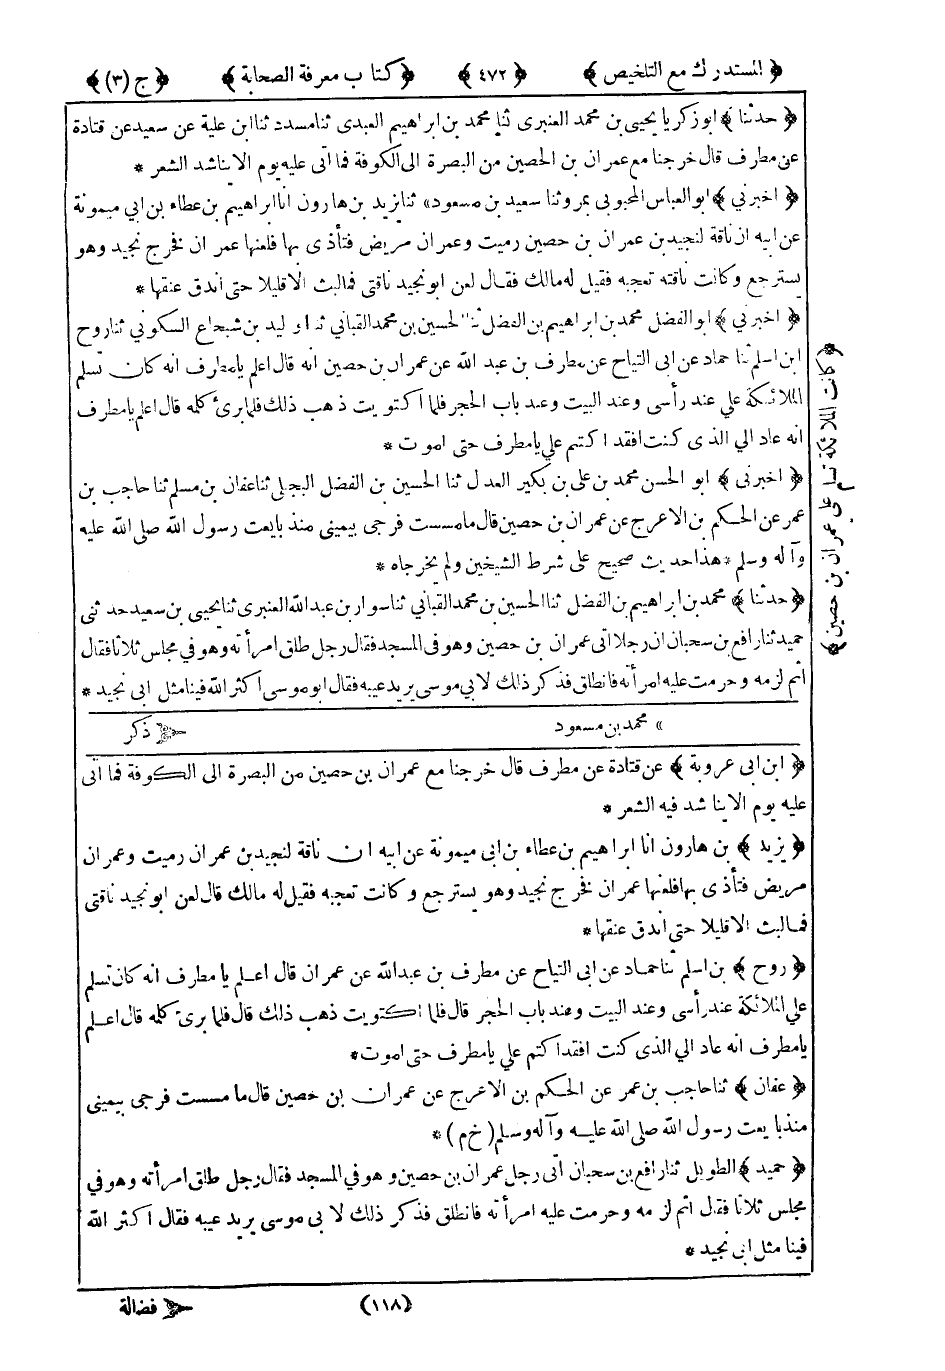 ﴿ المستدرك مع التلخيص ﴾ ﴿ ٤٧٢ ﴾ ﴿ كتاب معرفة الصحابة ﴾ ﴿ ج (٣) ﴾
﴿ حدثنا ﴾ ابو زكريا يحيى بن محمد العنبرى ثنا محمد بن ابراهيم العبدى ثنا مسدد ثنا ابن علية عن سعيد عن قتادة
عن مطرف قال خرجنا مع عمران بن الحصين من البصرة الى الكوفة فما اتى عليه يوم الا يناشد الشعر *
﴿ اخبرني ﴾ ابو العباس المحبوبى بمرو ثنا سعيد بن مسعود « ثنا يزيد بن هارون انا ابراهيم بن عطاء بن ابي ميمونة
عن ابيه ان ناقة لنجيد بن عمران بن حصين رميت وعمران مريض فتأذى بها فلعنها عمران فخرج نجيد وهو
يسترجع وكانت ناقته تعجبه فقيل له مالك فقال لعن ابو نجيد ناقتى فما لبث الا قليلا حتى اندق عنقها *
﴿ اخبرني ﴾ ابو الفضل محمد بن ابراهيم بن الفضل ثنا الحسين بن محمد القبانى ثنا الوليد بن شجاع السكونى ثنا روح
ابن اسلم ثنا حماد عن ابى التياح عن مطرف بن عبد الله عن عمران بن حصين انه قال اعلم يا مطرف انه كان تسلم
الملائكة على عند رأسى وعند البيت وعند باب الحجر فلما اكتويت ذهب ذلك فلما برئ كلمه قال اعلم يا مطرف
انه عاد الى الذى كنت افقد اكتم علي يا مطرف حتى اموت *
﴿ اخبرنى ﴾ ابو الحسن محمد بن على بن بكير العدل ثنا الحسين بن الفضل البجلى ثنا عفان بن مسلم ثنا حاجب بن
عمر عن الحكم بن الاعرج عن عمران بن حصين قال ما مسست فرجى بيمينى منذ بايعت رسول الله صلى الله عليه
وآله وسلم * هذا حديث صحيح على شرط الشيخين ولم يخرجاه *
﴿ حدثنا ﴾ محمد بن ابراهيم بن الفضل ثنا الحسين بن محمد القبانى ثنا سوار بن عبد الله العنبرى ثنا يحيى بن سعيد حدثنى
حميد ثنا رافع بن سحبان ان رجلا اتى عمران بن حصين وهو فى المسجد فقال رجل طلق امرأته وهو فى مجلس ثلاثا فقال
اثم لزمه وحرمت عليه امرأته فانطلق فذكر ذلك لابي موسى يريد عيبه فقال ابو موسى اكثر الله فينا مثل ابى نجيد *
﴿ كانت الملائكة تسلم على عمران بن حصين ﴾
« محمد بن مسعود
ذكر
﴿ ابن ابى عروبة ﴾ عن قتادة عن مطرف قال خرجنا مع عمران بن حصين من البصرة الى الكوفة فما اتى
عليه يوم الا يناشد فيه الشعر *
﴿ يزيد ﴾ بن هارون انا ابراهيم بن عطاء بن ابى ميمونة عن ابيه ان ناقة لنجيد بن عمران رميت وعمران
مريض فتأذى بها فلعنها عمران فخرج نجيد وهو يسترجع وكانت تعجبه فقيل له مالك قال لعن ابو نجيد ناقتى
فما لبث الا قليلا حتى اندق عنقها *
﴿ روح ﴾ بن اسلم ثنا حماد عن ابى التياح عن مطرف بن عبد الله عن عمران قال اعلم يا مطرف انه كان تسلم
علي الملائكة عند رأسى وعند البيت وعند باب الحجر قال فلما اكتويت ذهب ذلك قال فلما برئ كلمه قال اعلم
يا مطرف انه عاد الي الذى كنت افقد اكتم علي يا مطرف حتى اموت *
﴿ عفان ﴾ ثنا حاجب بن عمر عن الحكم بن الاعرج عن عمران بن حصين قال ما مسست فرجى بيمينى
منذ بايعت رسول الله صلى الله عليه وآله وسلم (خ م) *
﴿ حميد ﴾ الطويل ثنا رافع بن سحبان اتى رجل عمران بن حصين وهو فى المسجد فقال رجل طلق امرأته وهو في
مجلس ثلاثا فقال اثم لزمه وحرمت عليه امرأته فانطلق فذكر ذلك لابى موسى يريد عيبه فقال اكثر الله
فينا مثل ابى نجيد *
(١١٨)
فضالة